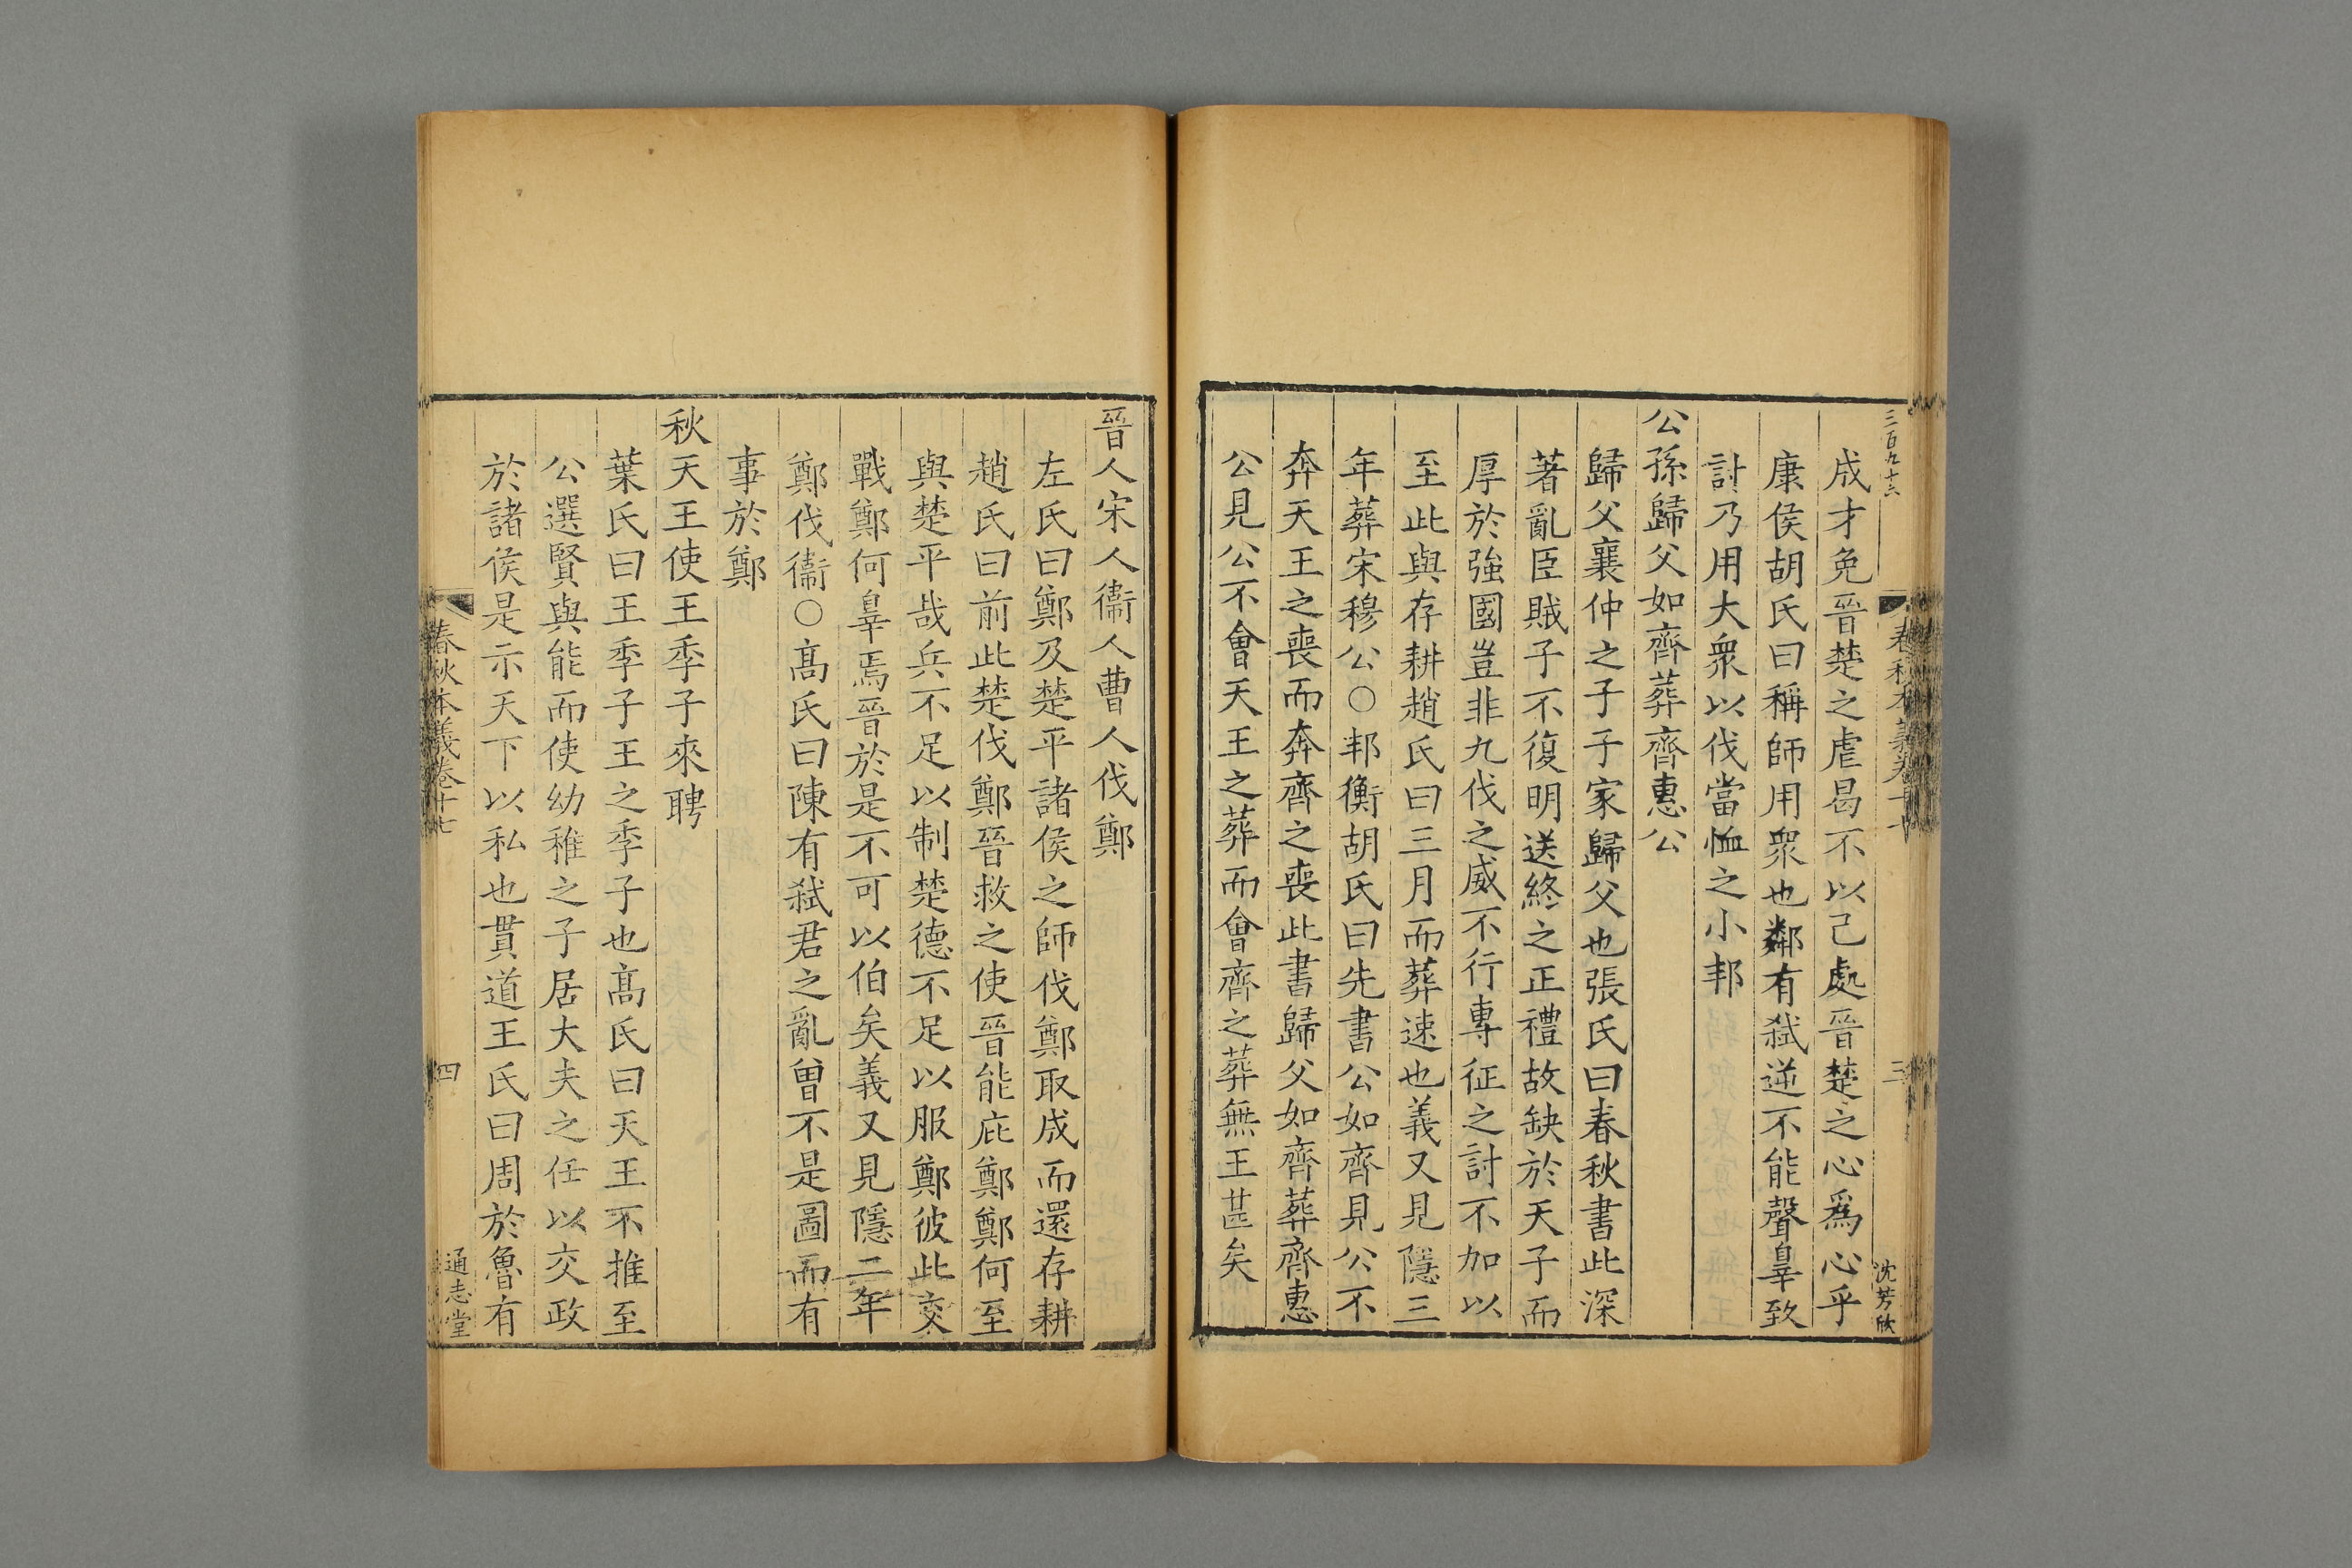 三百九十六
春秋本義卷十七
三
沈芳欣
成才免晉楚之虐曷不以己處晉楚之心爲心乎
康侯胡氏曰稱師用衆也鄰有弑逆不能聲辠致
討乃用大衆以伐當恤之小邦
公孫歸父如齊葬齊惠公
歸父襄仲之子子家歸父也張氏曰春秋書此深
著亂臣賊子不復明送終之正禮故缺於天子而
厚於強國豈非九伐之威不行專征之討不加以
至此與存耕趙氏曰三月而葬速也義又見隱三
年葬宋穆公○邦衡胡氏曰先書公如齊見公不
奔天王之喪而奔齊之喪此書歸父如齊葬齊惠
公見公不會天王之葬而會齊之葬無王甚矣
晉人宋人衞人曹人伐鄭
左氏曰鄭及楚平諸侯之師伐鄭取成而還存耕
趙氏曰前此楚伐鄭晉救之使晉能庇鄭鄭何至
與楚平哉兵不足以制楚德不足以服鄭彼此交
戰鄭何辠焉晉於是不可以伯矣義又見隱二年
鄭伐衞○高氏曰陳有弑君之亂曽不是圖而有
事於鄭
秋天王使王季子來聘
葉氏曰王季子王之季子也高氏曰天王不推至
公選賢與能而使幼稚之子居大夫之任以交政
於諸侯是示天下以私也貫道王氏曰周於魯有
春秋本義卷十七
四
通志堂